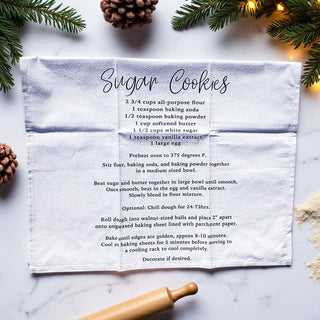 Sugar Cookies
2 3/4 cups all-purpose flour
1 teaspoon baking soda
1/2 teaspoon baking powder
1 cup softened butter
1 1/2 cups white sugar
1 teaspoon vanilla extract
1 large egg
Preheat oven to 375 degrees F.
Stir flour, baking soda, and baking powder together
in a medium sized bowl.
Beat sugar and butter together in large bowl until smooth.
Once smooth, beat in the egg and vanilla extract.
Slowly blend in flour mixture.
Optional: Chill dough for 24-72hrs.
Roll dough into walnut-sized balls and place 2" apart
onto ungreased baking sheet lined with parchment paper.
Bake until edges are golden, approx 8-10 minutes.
Cool on baking sheets for 5 minutes before moving to
a cooling rack to cool completely.
Decorate if desired.